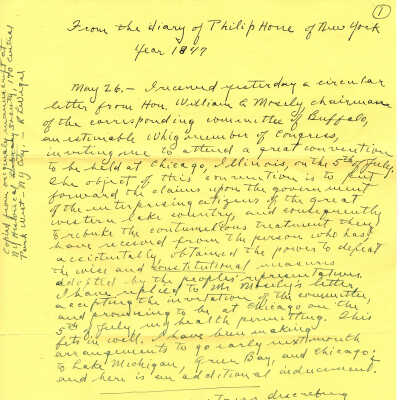 1
From the diary of Philip Hone of New York
Year 1847
May 26.— I received yesterday a circular
letter from Hon. William A Mosely, chairman
of the corresponding committee of Buffalo,
an estimable Whig member of Congress,
inviting me to attend a great convention
to be held at Chicago, Illinois, on the 5th of July.
The object of this convention is to put
forward the claims upon the government
of the enterprising citizens of the great
western lake country, and consequently
to rebuke the contumelious treatment they
have received from the person who has
accidentally obtained the power to defeat
the wise and constitutional measures
adopted by the people's representatives.
I have replied to Mr Mosely's letter,
accepting the invitation of the committee,
and promising to be at Chicago on the
5th of July, my health permitting. This
fits in well. I have been making
arrangements to go early next month
to Lake Michigan, Green Bay, and Chicago;
and here is an additional inducement.
Copied from original manuscript at
NY Historical Society, 170 Central
Park West, NY City. By R